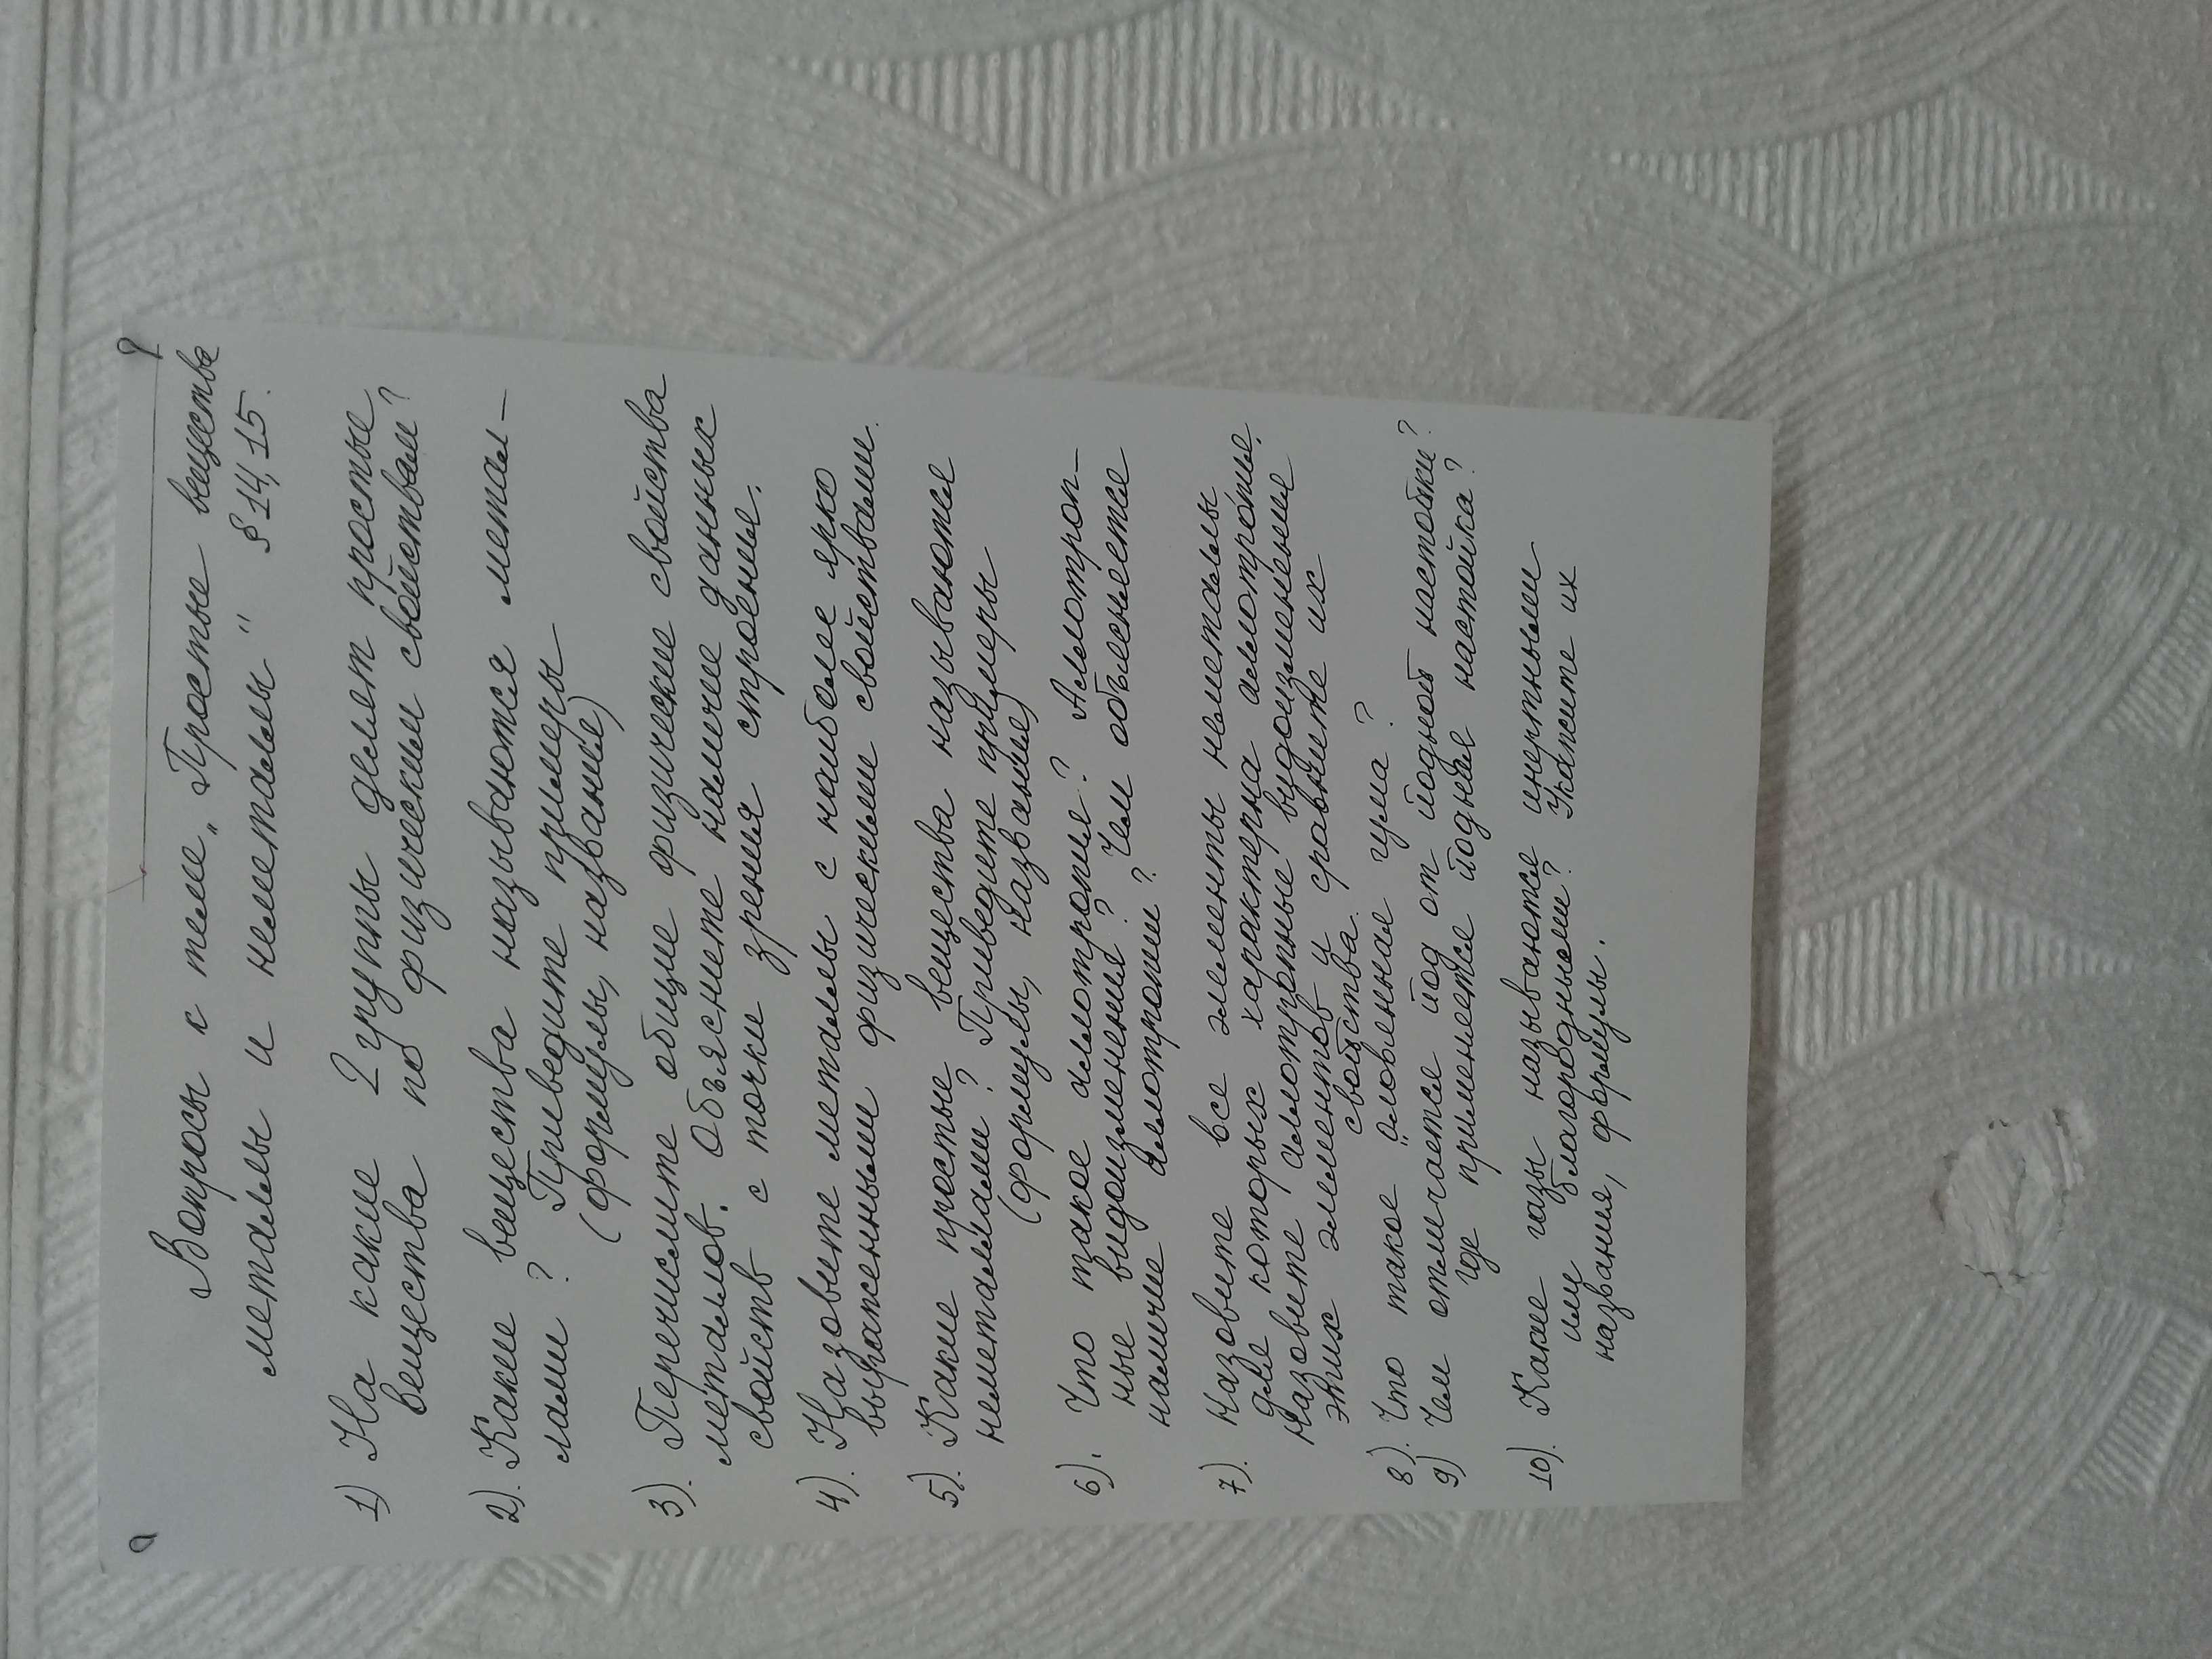 Вопросы к теме „Простые вещества
металлы и неметаллы" § 14, 15.
1) На какие 2 группы делят простые
вещества по физическим свойствам?
2). Какие вещества называются метал-
лами? Приведите примеры
(формулы, название)
3). Перечислите общие физические свойства
металлов. Объясните наличие данных
свойств с точки зрения строения.
4). Назовите металлы с наиболее ярко
выраженными физическими свойствами.
5). Какие простые вещества называются
неметаллами? Приведите примеры
(формулы, название)
6). Что такое аллотропия? Аллотроп-
ные видоизменения? Чем объясняется
наличие аллотропии?
7). Назовите все элементы неметаллы
для которых характерна аллотропие.
Назовите аллотропные видоизменения
этих элементов и сравните их
свойства.
8). Что такое „оловянная чума?
9) Чем отличается йод от йодной настойки?
где применяется йодная настойка?
10). Какие газы называются инертными
или благородными? Укажите их
названия, формулы.